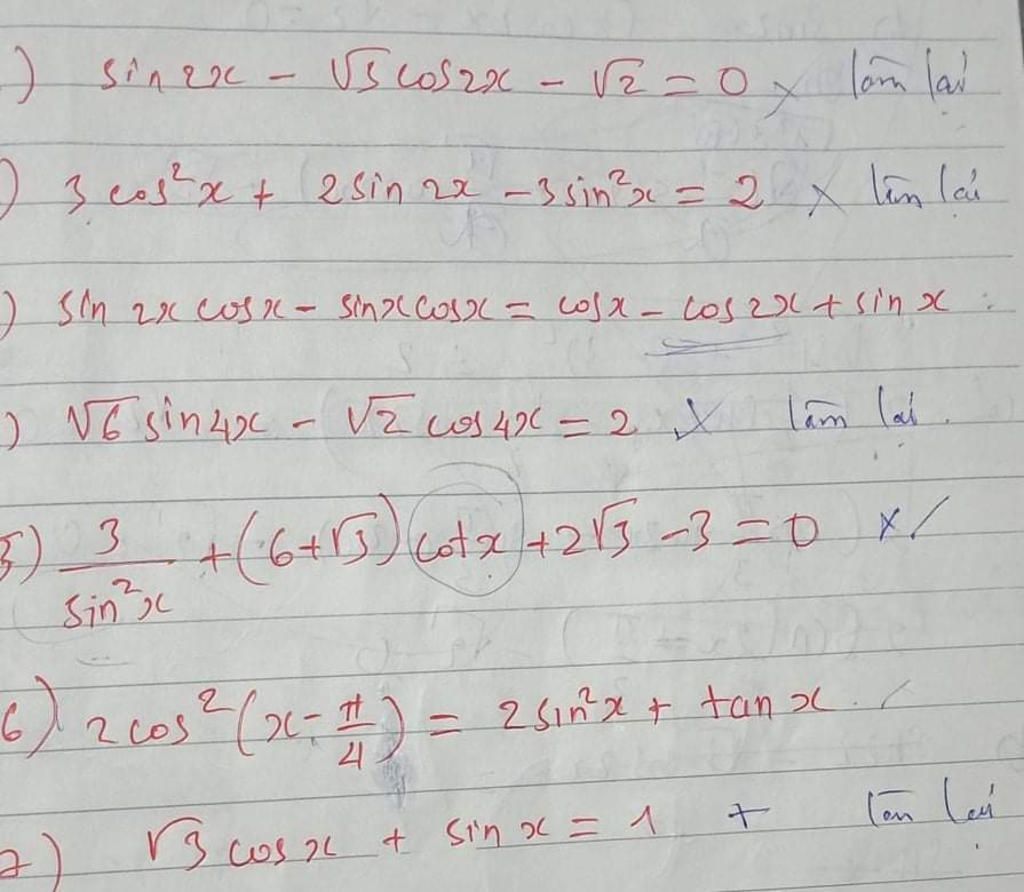 ) sin 2x - √3 cos2x - √2 = 0 × làm lại
) 3 cos²x + 2 sin 2x - 3 sin²x = 2 × làm lại
) sin 2x cosx - sinx cosx = cosx - cos 2x + sin x
) √6 sin4x - √2 cos4x = 2 × làm lại.
5) 3/sin²x + (6+√3) cotx + 2√3 - 3 = 0 × /
6) 2cos²(x - π/4) = 2 sin²x + tan x.
7) √3 cos x + sin x = 1 + làm lại